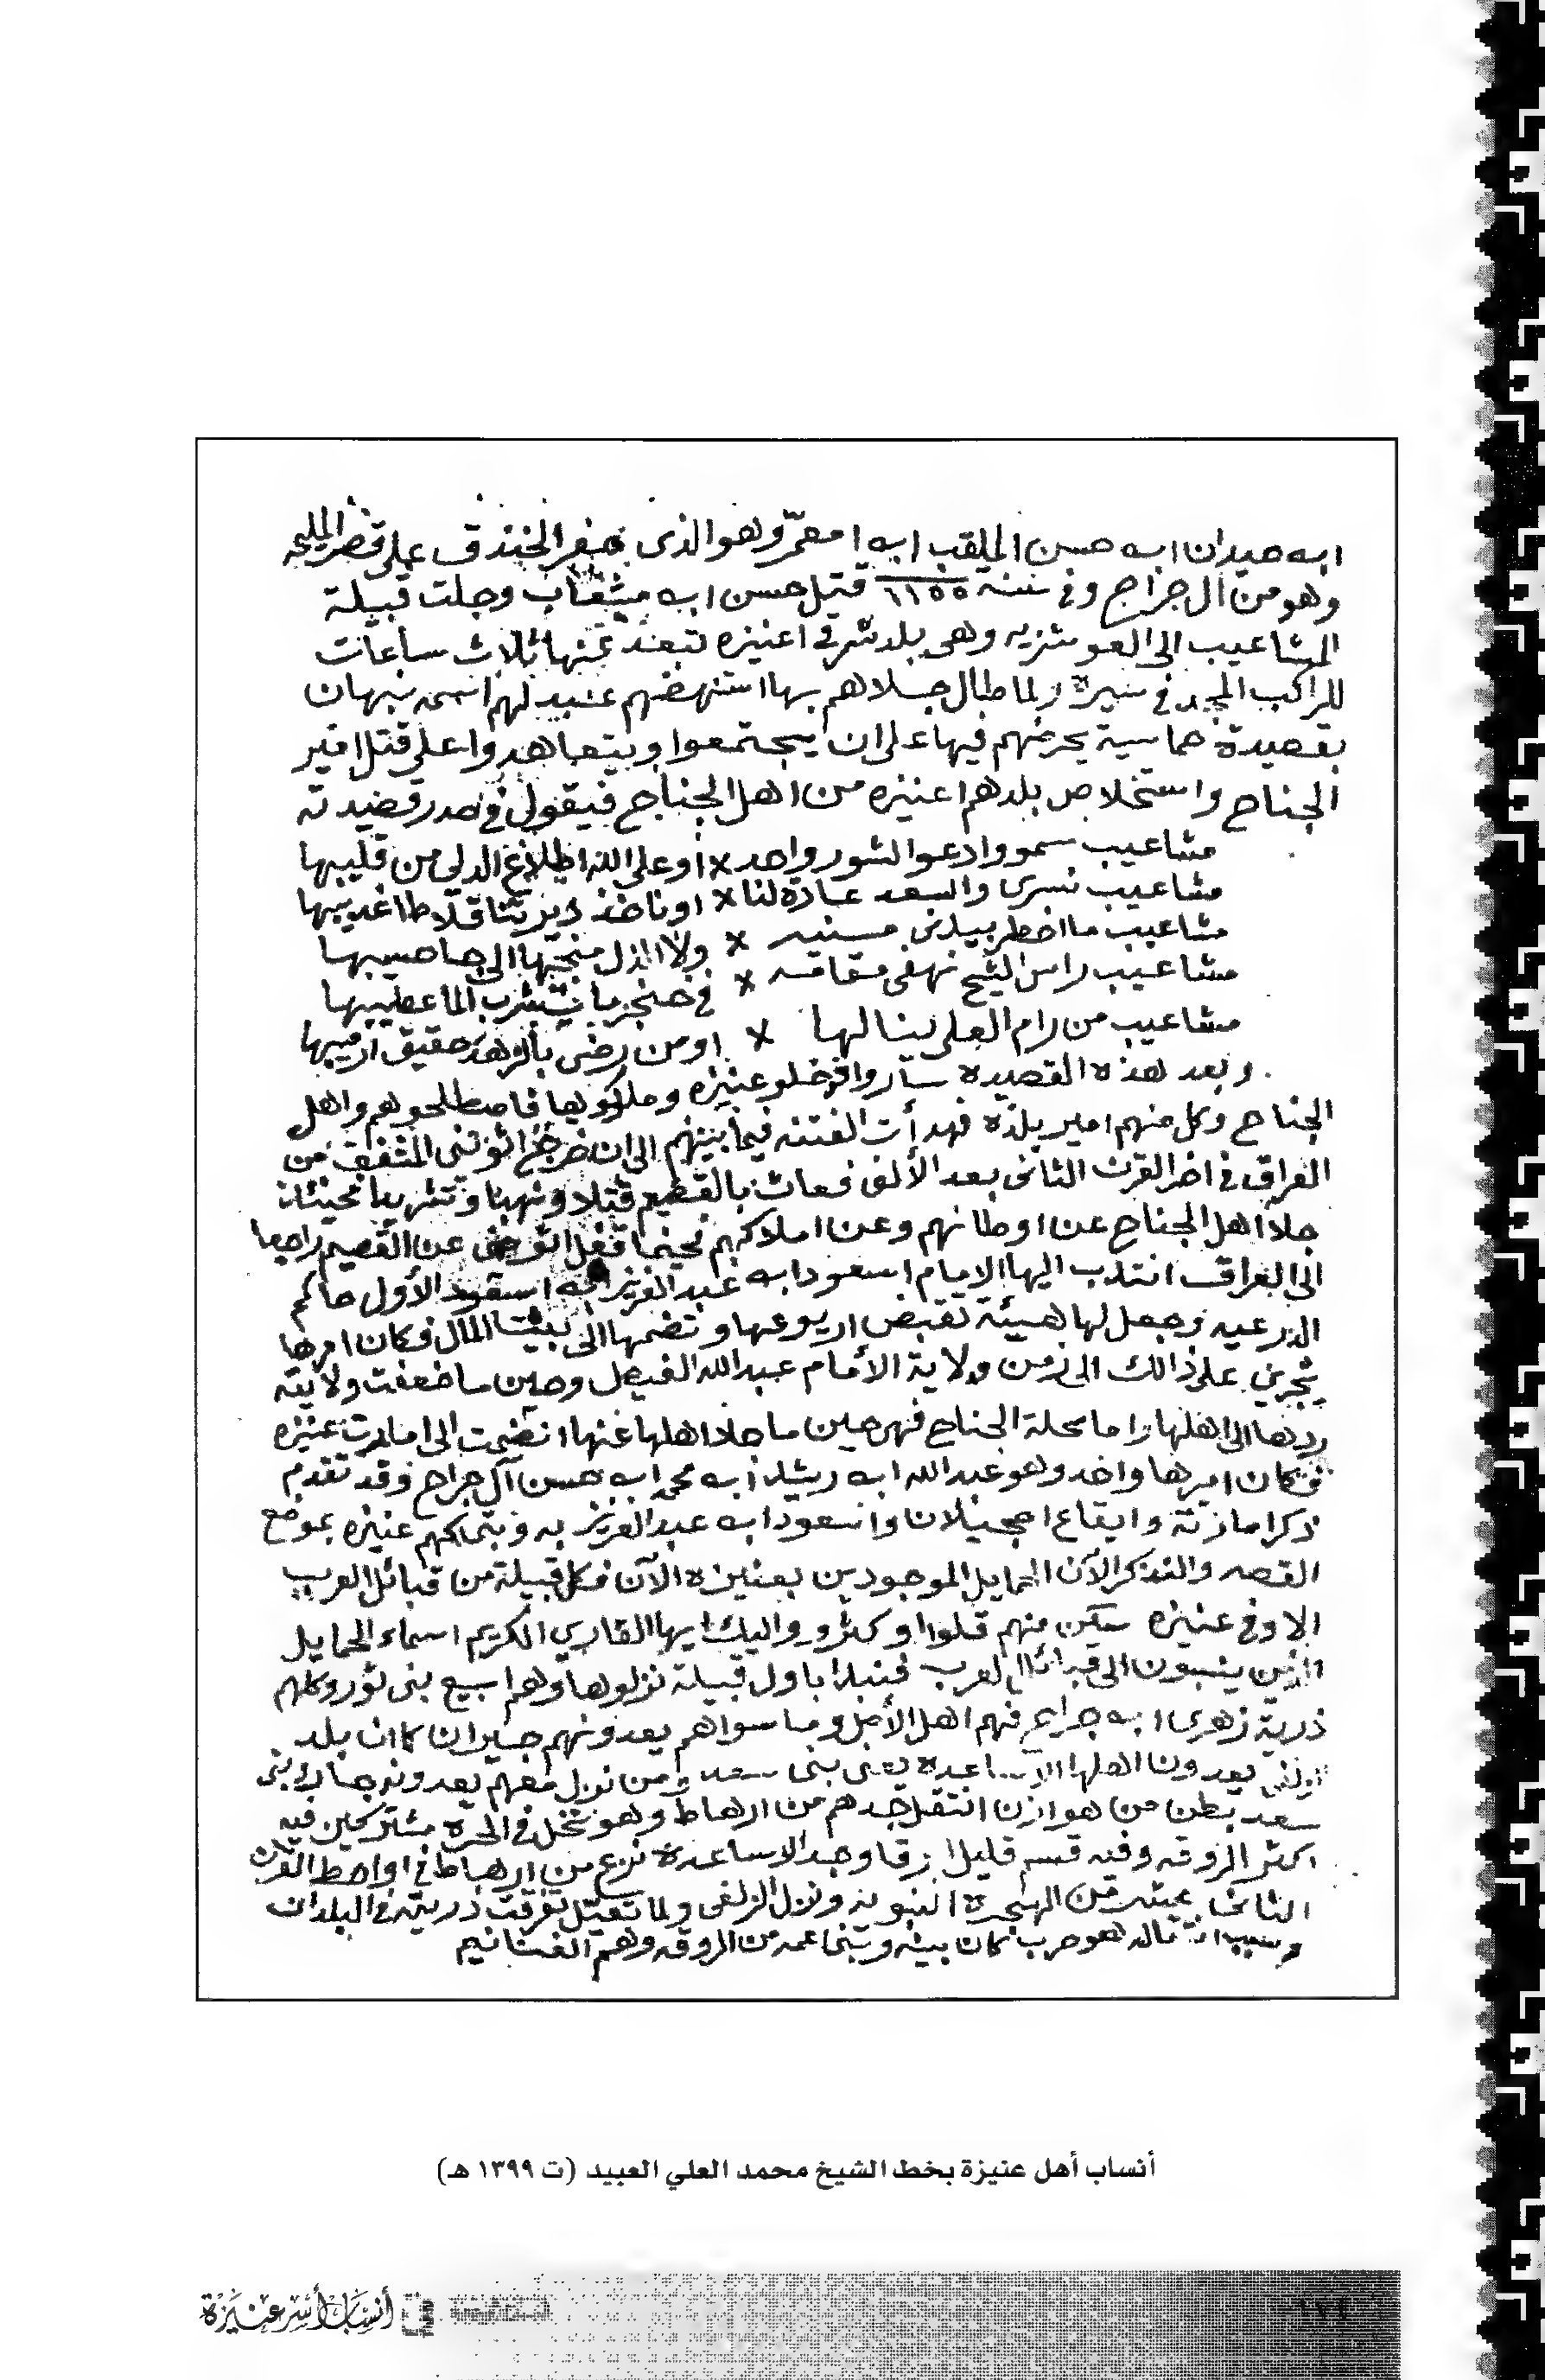 ابه حيدان ابه حسن الملقب ابه امعمّر وهو الذى حفر الخندق على قصر المليحه
وهو من آل جراح وفي سنة ١١٥٥ قتل حسن ابه مشعاب وجلت قبيلة
المشاعيب الى العوشزيه وهى بلد شرقى اعنيزه تبعد عنها ثلاث ساعات
للراكب المجد في سيره ولما طال جلاهم بها استنهضهم عبيد لهم اسمه نبهان
بقصيدة حماسية يحرضهم فيها على ان يجتمعوا ويتعاهدوا على قتل امير
الجناح واستخلاص بلدهم اعنيزه من اهل الجناح فيقول في صدر قصيدته
مشاعيب سموا وادعوا الشور واحد × او على الله اطلاع الدلي من قليبها
مشاعيب نسرى والسعد عادة لنا × اوناخذ ديرتنا قلاط اغديبها
مشاعيب ما اخطر بيدنى مسنيه × ولا الذل منجيها الى جا حسيبها
مشاعيب راس الشيخ نهفى مقامه × في حنجر ما يشرب الما عطيبها
مشاعيب من رام العلى ينالها × اومن رضى بالزهد حقيق ارميبها
وبعد هذه القصيدة ساروا فدخلو عنيزه وملكوها فاصطلحو هم واهل
الجناح وكل منهم امير بلده فهدأت الفتنه فيما بينهم الى ان خرج اثوينى المنتفق من
العراق في اخر القرن الثانى بعد الألف فعاث بالقصيم قتلا ونهبا وتشريدا فحينئذ
جلا اهل الجناح عن اوطانهم وعن املاكهم فحينما قفل اثوينى عن القصيم راجعا
الى العراق انتدب اليها الامام اسعود ابه عبد العزيز ابه اسعود الأول حاكم
الدرعيه وجعل لها هيئة تقبض اريوعها وتضمها الى بيت المال فكان امرها
يجرى على ذالك الى زمن ولاية الأمام عبد الله الفيصل وحين ما ضعفت ولايته
ردها الى اهلها واما محلة الجناح فهى حين ما جلا اهلها عنها انضمت الى امارت عنيزه
فكان اميرها واحد وهو عبد الله ابه رشيد ابه محمد ابه حسن آل جراح وقد تقدم
ذكر امارته وايقاع احجيلان واسعود ابه عبد العزيز به وبتملكهم عنيزه بموضع
القصه والنذكر الآن الحمايل الموجودين بعنيزه الآن فكل قبيلة من قبائل العرب
الا وفي عنيزه سكن منهم قلوا او كثرو واليك ايها القاري الكريم اسماء الحمايل
الذين ينسبون الى قبائل العرب فنبدا باول قبيلة نزلوها وهم اسبيع بنى ثور وكلهم
ذرية زهرى ابه جراح فهم اهل الأصل وما سواهم يعدونهم جيران كما ان بلد
الزلفى يعدون اهلها الاساعده يعنى بنى سعد ومن نزل معهم يعدونه جار بنى
سعد بطن من هوازن انتقل جدهم من ارهاط وهو نخل في الحرة مشتركين فيه
اكثر الروقه وفيه قسم قليل ازقا وجد الاساعدة نزع من ارهاط في اواصط القرن
الثانى عشر من الهجرة النبويه ونزل الزلفى ولما تقتل تفرقت ذريته في البلدان
وسبب انتقاله هو حرب كان بينه وبنى عمه من الروقه وهم الغشانيم
أنساب أهل عنيزة بخط الشيخ محمد العلي العبيد (ت ١٣٩٩ هـ)
في أنساب أسر عنيزة